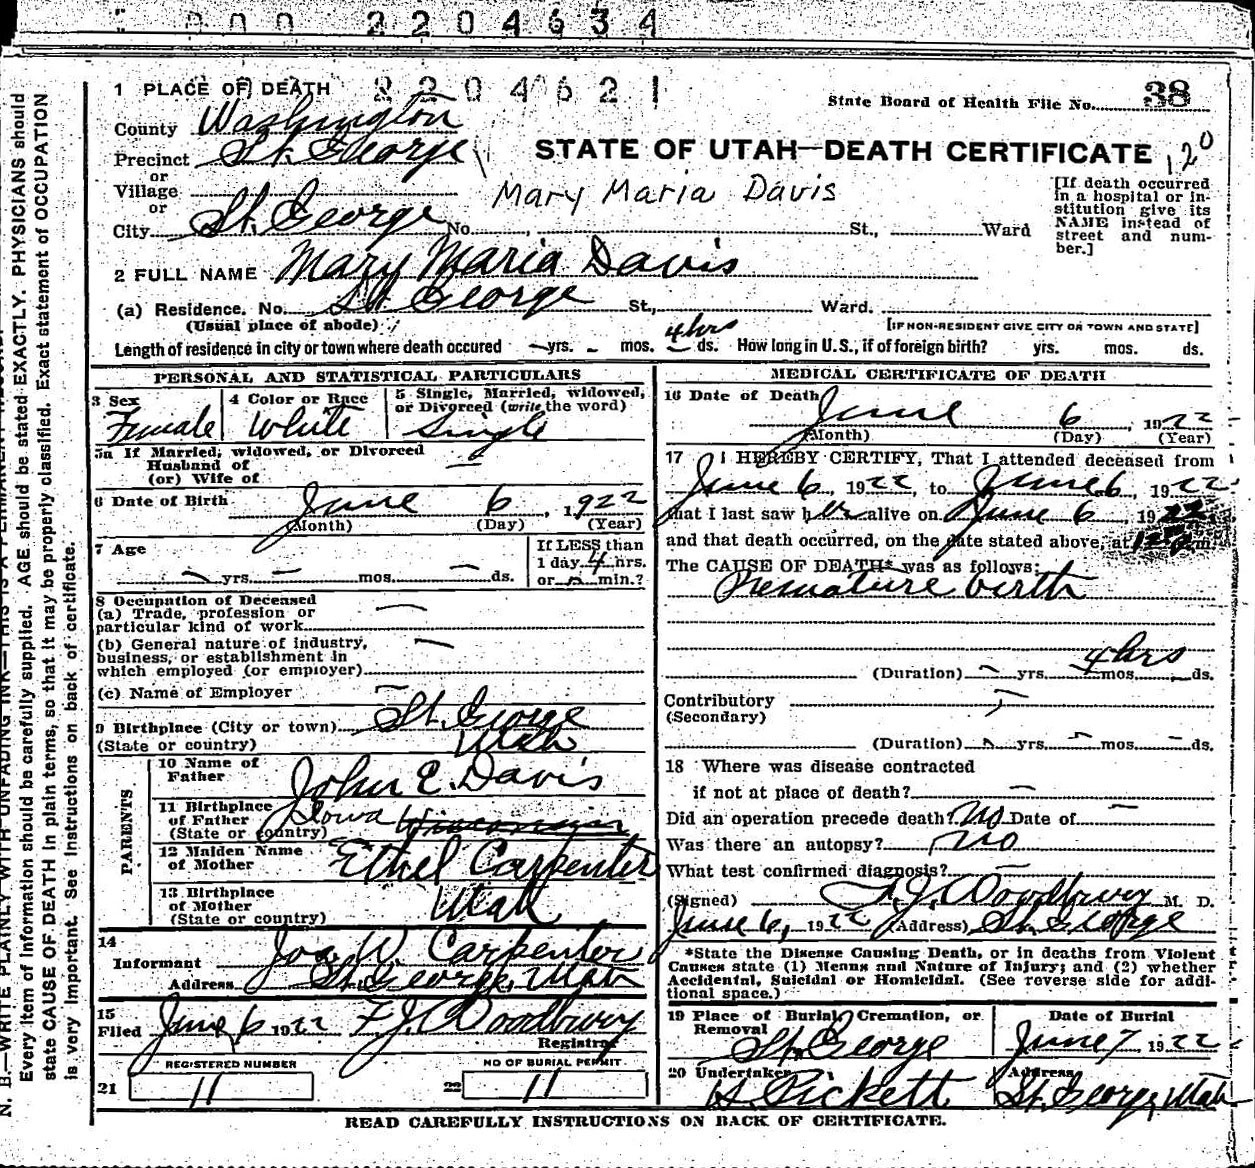 000 2204634
1 PLACE OF DEATH 2204621
State Board of Health File No. 38
County Washington
Precinct St. George
or
Village
or
City St. George No. St., Ward
STATE OF UTAH—DEATH CERTIFICATE 120
Mary Maria Davis
[If death occurred
in a hospital or in-
stitution give its
NAME instead of
street and num-
ber.]
2 FULL NAME Mary Maria Davis
(a) Residence. No. St. George St., Ward.
(Usual place of abode)
[IF NON-RESIDENT GIVE CITY OR TOWN AND STATE]
Length of residence in city or town where death occured — yrs. - mos. 4 hrs ds. How long in U.S., if of foreign birth? yrs. mos. ds.
PERSONAL AND STATISTICAL PARTICULARS
3 Sex Female
4 Color or Race White
5 Single, Married, widowed,
or Divorced (write the word)
Single
5a If Married, widowed, or Divorced
Husband of
(or) Wife of —
6 Date of Birth June 6, 1922
(Month) (Day) (Year)
7 Age
— yrs. — mos. — ds.
If LESS than
1 day 4 hrs.
or — min.?
8 Occupation of Deceased
(a) Trade, profession or
particular kind of work —
(b) General nature of industry,
business, or establishment in
which employed (or employer) —
(c) Name of Employer —
9 Birthplace (City or town) St. George
(State or country) Utah
PARENTS
10 Name of
Father John E. Davis
11 Birthplace
of Father
(State or country) Iowa Wisconsin
12 Maiden Name
of Mother Ethel Carpenter
13 Birthplace
of Mother
(State or country) Utah
14
Informant Jos W. Carpenter
Address St. George, Utah
15
Filed June 6 1922 F. J. Woodbury
Registrar
REGISTERED NUMBER NO OF BURIAL PERMIT
21 11 22 11
MEDICAL CERTIFICATE OF DEATH
16 Date of Death
June 6, 1922
(Month) (Day) (Year)
17 I HEREBY CERTIFY, That I attended deceased from
June 6, 1922, to June 6, 1922
that I last saw her alive on June 6, 1922,
and that death occurred, on the date stated above, at m
The CAUSE OF DEATH* was as follows:
Premature birth
4 hrs
(Duration) — yrs. mos. — ds.
Contributory
(Secondary) —
(Duration) - yrs. - mos. - ds.
18 Where was disease contracted
if not at place of death? —
Did an operation precede death? No Date of —
Was there an autopsy? No
What test confirmed diagnosis? —
(Signed) F. J. Woodbury M. D.
June 6, 1922 (Address) St. George
*State the Disease Causing Death, or in deaths from Violent
Causes state (1) Means and Nature of Injury; and (2) whether
Accidental, Suicidal or Homicidal. (See reverse side for addi-
tional space.)
19 Place of Burial, Cremation, or
Removal
St. George
Date of Burial
June 7, 1922
20 Undertaker
H. Pickett
Address
St. George, Utah
READ CAREFULLY INSTRUCTIONS ON BACK OF CERTIFICATE.
N. B.—WRITE PLAINLY WITH UNFADING INK—THIS IS A PERMANENT
Every item of information should be carefully supplied. AGE should be stated EXACTLY. PHYSICIANS should
state CAUSE OF DEATH in plain terms, so that it may be properly classified. Exact statement of OCCUPATION
is very important. See instructions on back of certificate.